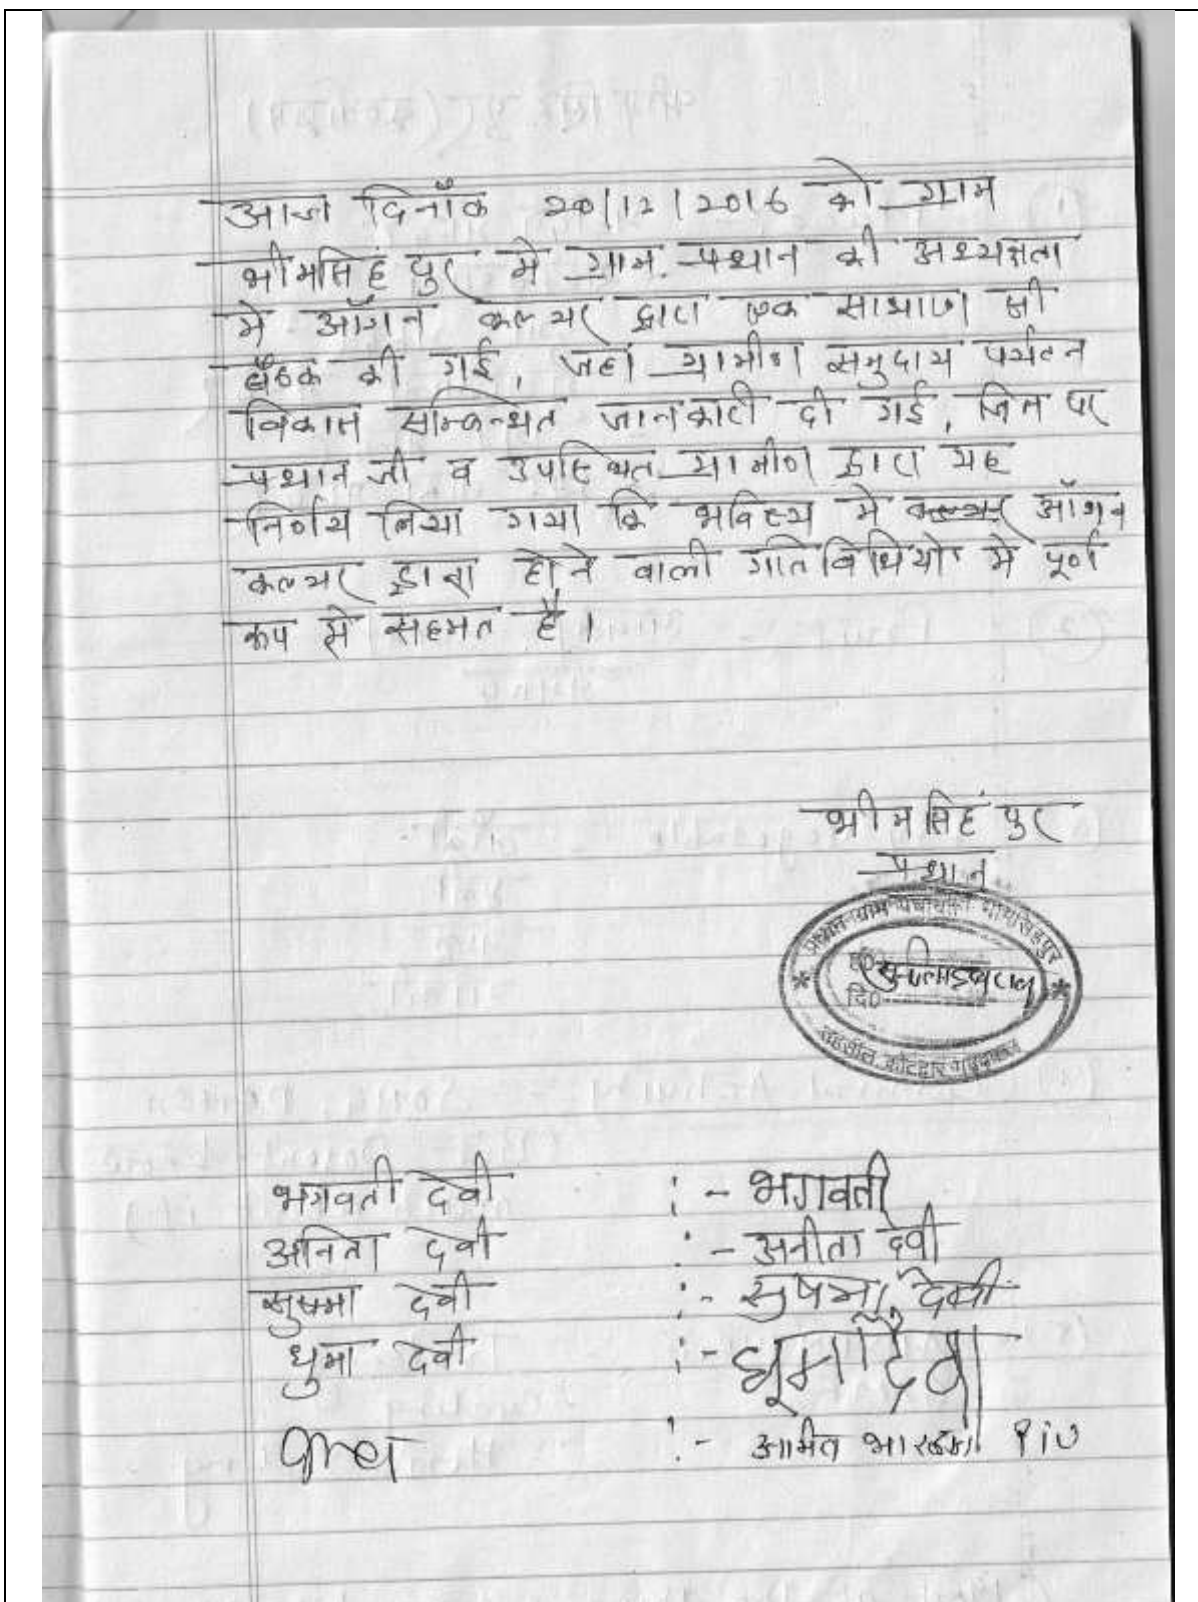 आज दिनाँक 20/12/2016 को ग्राम
भीमसिहं पुर मे ग्राम प्रधान की अध्यक्षता
मे आँगन कल्चर द्वारा एक साधारण सी
बैठक की गई, जहां ग्रामीण समुदाय पर्यटन
विकास सम्बन्धित जानकारी दी गई, जिस पर
प्रधान जी व उपस्थित ग्रामीण द्वारा यह
निर्णय लिया गया कि भविष्य मे कल्चर आँगन
कल्चर द्वारा होने वाली गतिविधियो में पूर्ण
रूप से सहमत है।
भीमसिहं पुर
प्रधान
प्रधान ग्राम पंचायत भीमसिंहपुर
ह0
दि0
तहसील कोटद्वार गढ़वाल
भगवती देवी :- भगवती
अनिता देवी :- अनीता देवी
सुषमा देवी :- सुषमा देवी
धुमा देवी :- धूमादेवी
:- अमित PiU